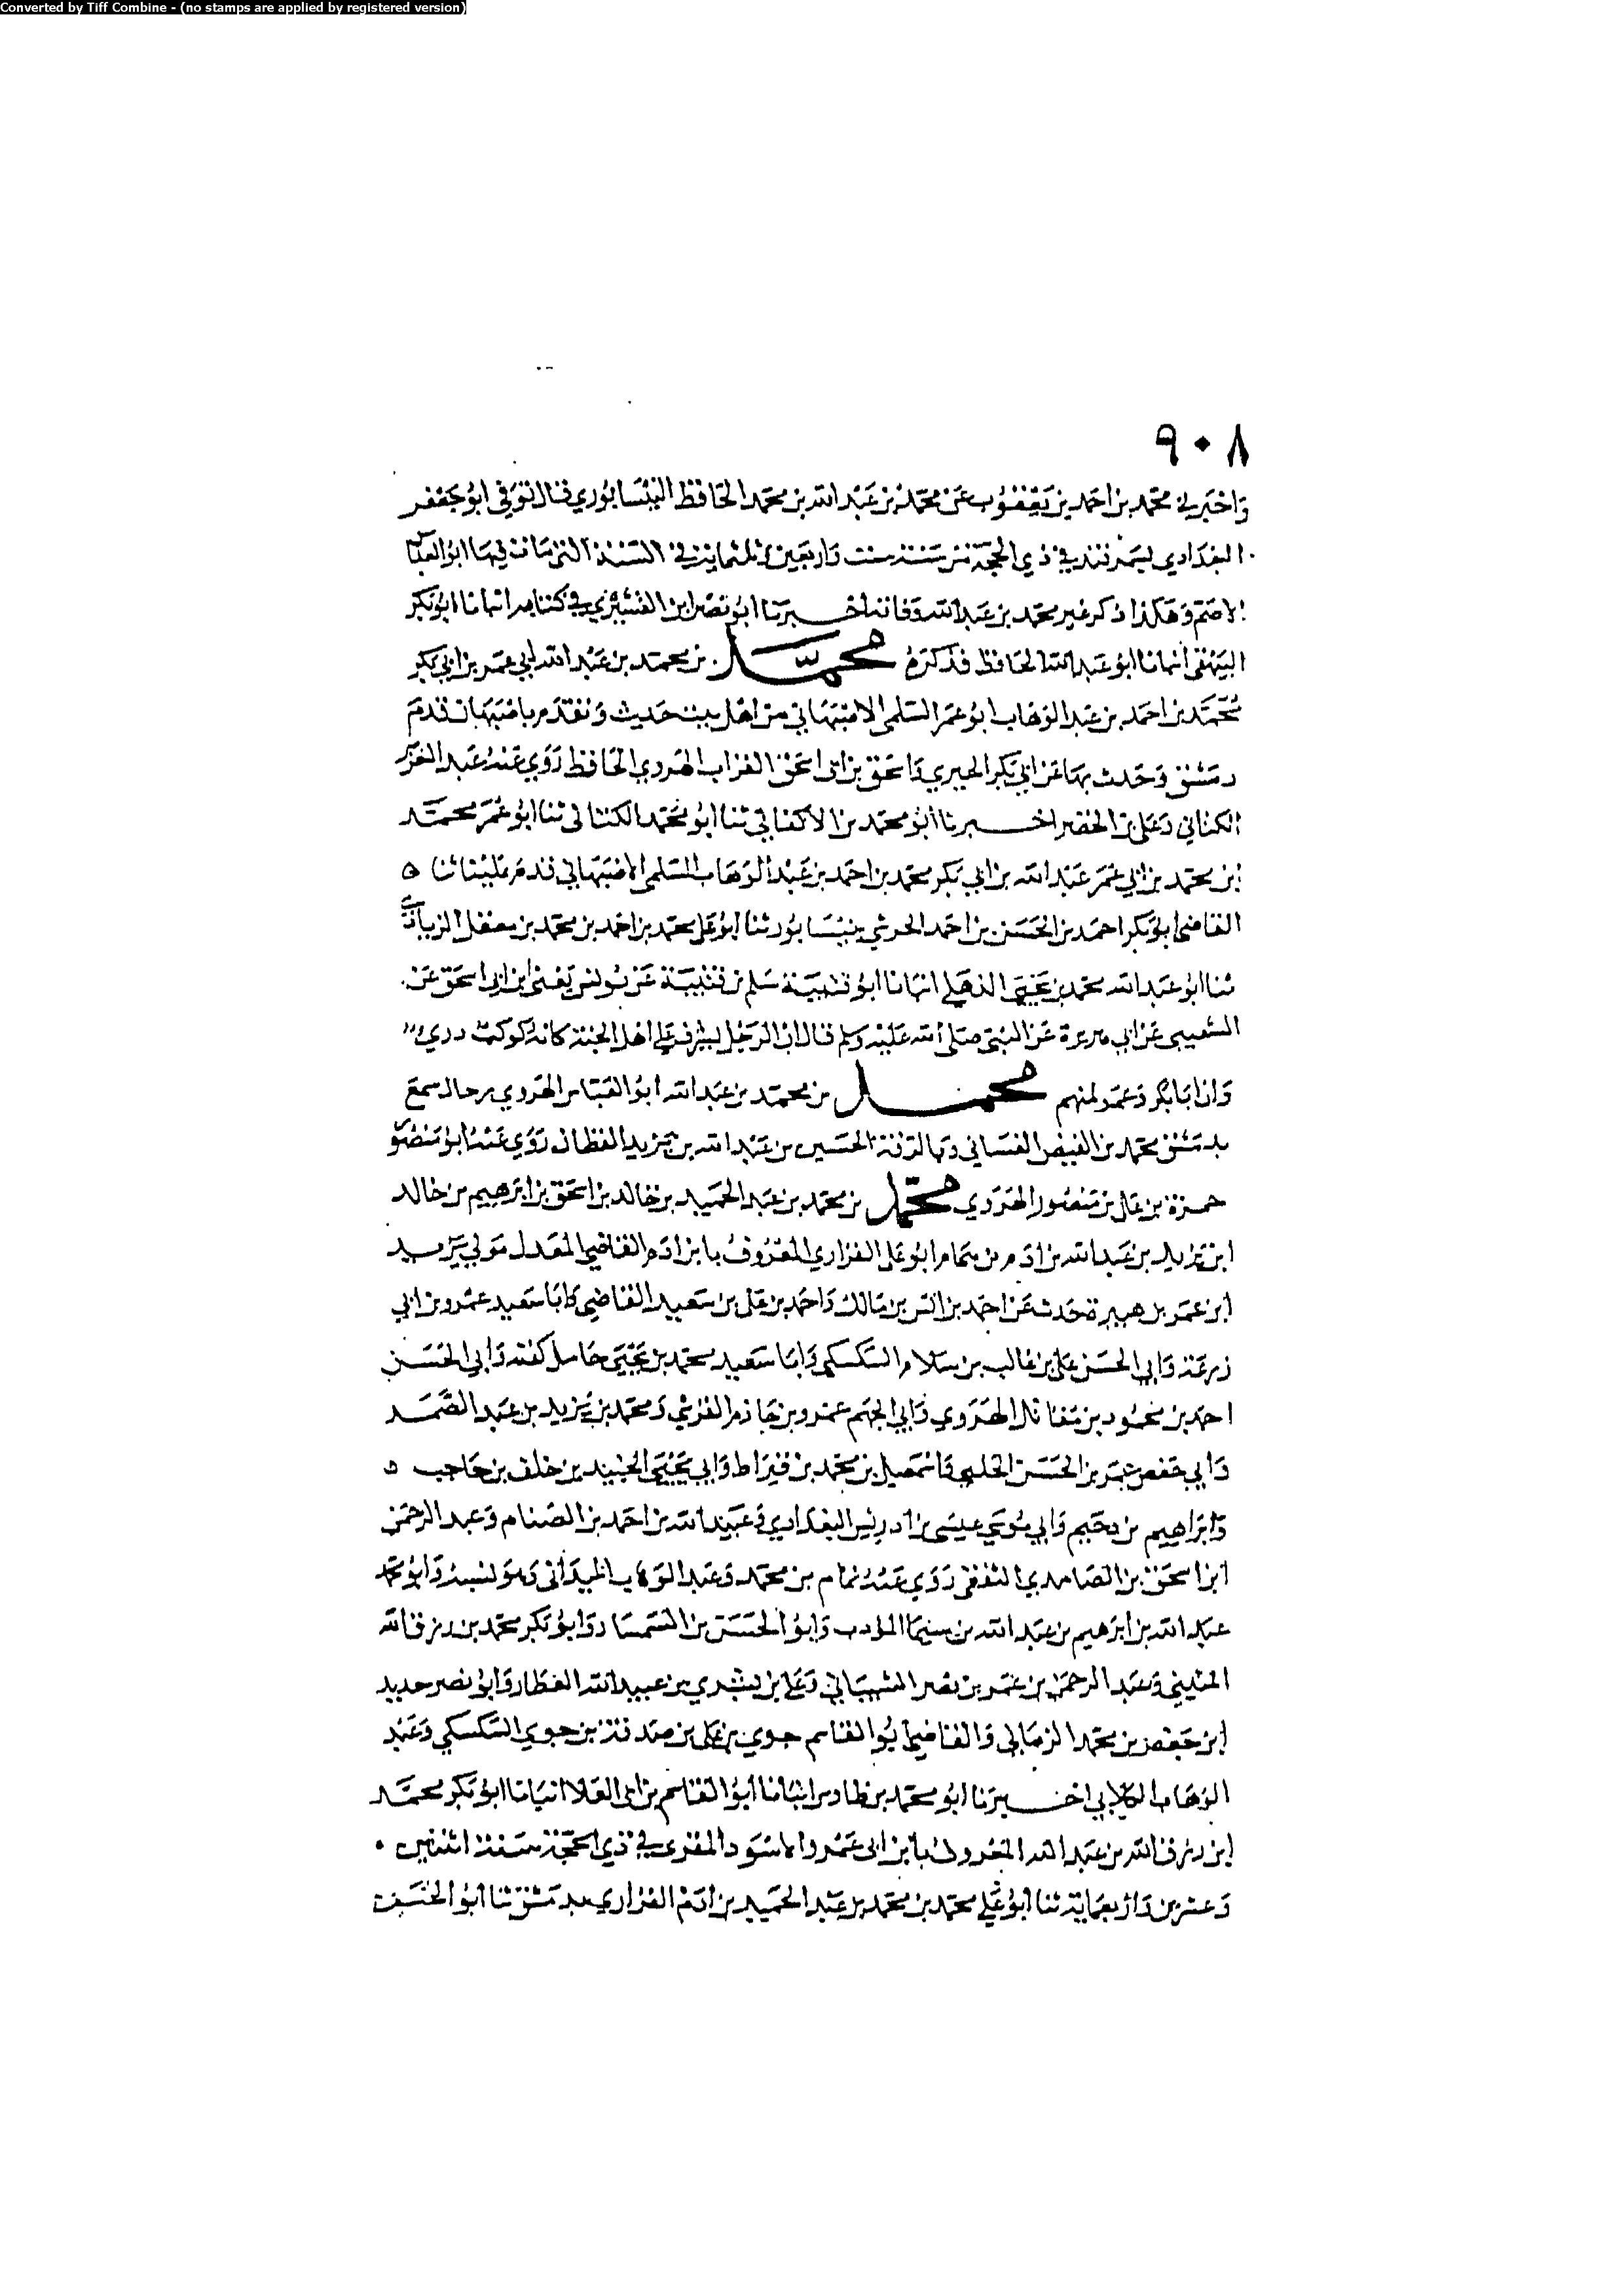 Converted by Tiff Combine - (no stamps are applied by registered version)
٩٠٨
واخبرني محمد بن احمد بن يعقوب عن محمد بن عبد الله بن محمد الحافظ النيسابوري قال توفي ابو جعفر
البغدادي بسمرقند في ذي الحجة من سنة ست واربعين وثلثماية في السنة التي مات فيها ابو العباس
الاصم وهكذا ذكر غير محمد بن عبد الله وفاته اخبرنا ابو نصر ابن القشيري في كتابه انبانا ابو بكر
البيهقي انبانا ابو عبد الله الحافظ فذكره محمد بن محمد بن عبد الله ابي عمر بن ابي بكر
محمد بن احمد بن عبد الوهاب ابو عمر السلمي الاصبهاني من اهل بيت حديث وتقدم باصبهان قدم
دمشق وحدث بها عن ابي بكر الحيري واسحق بن ابي اسحق القراب الهروي الحافظ روي عنه عبد العزيز
الكتاني وعلي بن الخضر اخبرنا ابو محمد بن الاكفاني ثنا ابو محمد الكتاني ثنا ابو عمر محمد
بن محمد بن ابي عمر عبد الله بن ابي بكر محمد بن احمد بن عبد الوهاب السلمي الاصبهاني قدم علينا ثنا
القاضي ابو بكر احمد بن الحسن بن احمد الحرشي بنيسابور ثنا ابو علي محمد بن احمد بن محمد بن معقل
ثنا ابو عبد الله محمد بن يحيى الذهلي انبانا ابو قتيبة سلم بن قتيبة عن يونس يعني ابن ابي اسحق عن
الشعبي عن ابي هريرة عن النبي صلى الله عليه وسلم قال ان الرجل ليشرف على اهل الجنة كانه كوكب دري
وان ابا بكر وعمر لمنهم محمد بن محمد بن عبد الله ابو العباس الهروي رحال سمع
بدمشق محمد بن الفيض الغساني وبالرقة الحسين بن عبد الله بن يزيد القطان روي عنه ابو منصور
حمزة بن عال بن منصور الهروي محمد بن محمد بن عبد الحميد بن خالد بن اسحق بن ابرهيم بن خالد
ابن يزيد بن عبد الله بن ادم بن تمام ابو علي الفزاري المعروف بابن ادم القاضي المعدل مولي يزيد
ابن عمر بن هبيرة حدث عن احمد بن انس بن مالك واحمد بن علي بن سعيد القاضي وابا سعيد عمرو بن ابي
زرعة وابي الحسن علي بن غالب بن سلام السكسكي وابا سعيد محمد بن يحيى حامل كفنه وابي الحسن
احمد بن محمود بن مقاتل الهروي وابي الجهم عمرو بن حازم القرشي ومحمد بن يزيد بن عبد الصمد
وابي حفص عمر بن الحسن الحلبي واسمعيل بن محمد بن قيراط وابي يحيى الجنيد بن خلف بن حاجب
وابراهيم بن دحيم وابي موسى عيسى بن ادريس البغدادي وعبيد الله بن احمد بن الصنام وعبد الرحمن
ابن اسحق بن الصامدي الثقفي روي عنه تمام بن محمد وعبد الوهاب الميداني وهو لنسبه وابو محمد
عبد الله بن ابرهيم بن عبد الله بن سيما المؤدب وابو الحسن بن السمسار وابو بكر محمد بن رزق الله
المنيني وعبد الرحمن بن عمر بن نصر الشيباني وعلي بن بشري بن عبيد الله العطار وابو نصر حديد
ابن جعفر بن محمد الرماني والقاضي ابو القاسم جوي بن علي بن صدقة بن جوي السكسكي وعبد
الوهاب الكلابي اخبرنا ابو محمد بن طاوس انبانا ابو القاسم بن ابي العلا انبانا ابو بكر محمد
ابن رزق الله بن عبد الله المعروف بابن ابي عمرو الاسود المقرى في ذي الحجة سنة اثنتين
وعشرين واربعماية ثنا ابو علي محمد بن محمد بن عبد الحميد بن ادم الفزاري بدمشق ثنا ابو الحسن